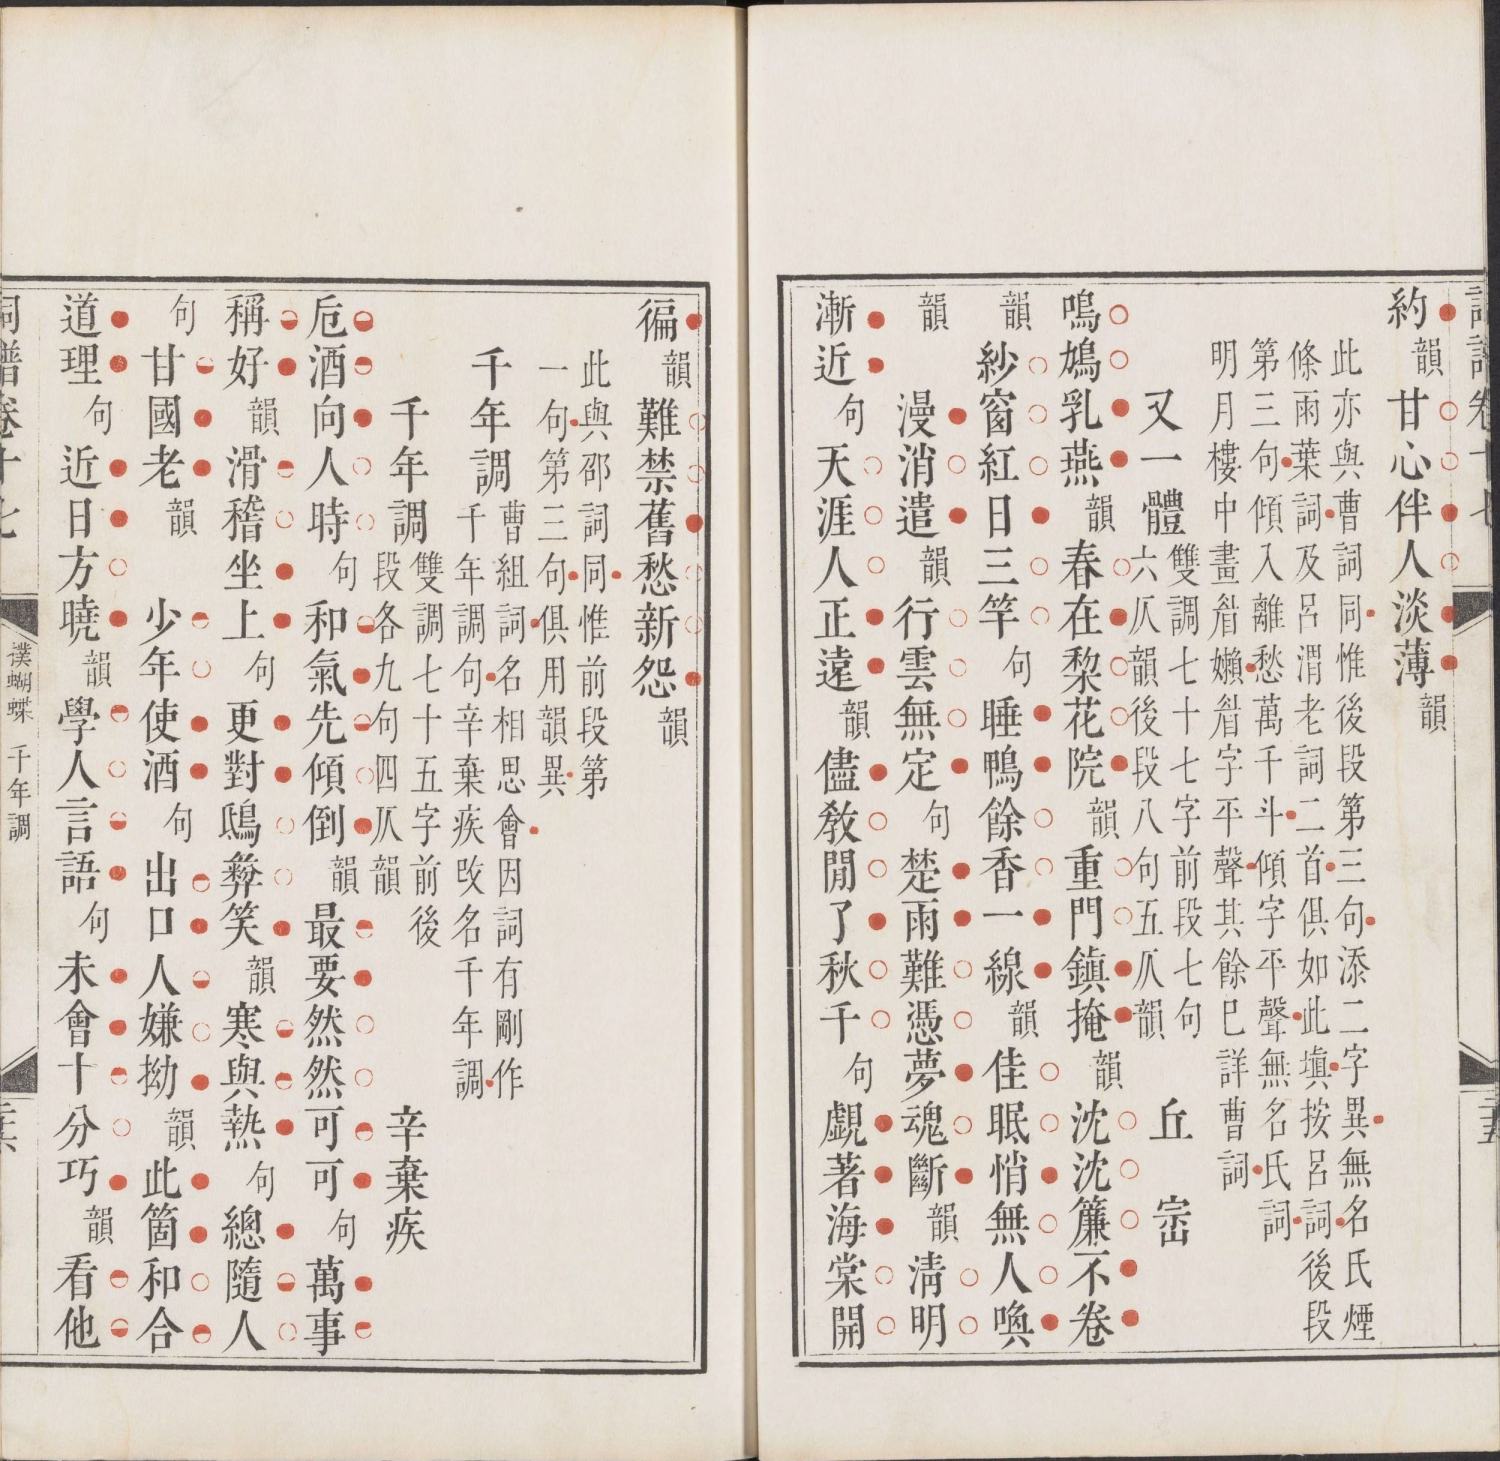 約韻甘心伴人淡薄韻
此亦與曹詞同惟後段第三句添二字異無名氏煙
條雨葉詞及呂渭老詞二首俱如此填按呂詞後段
第三句傾入離愁萬千斗傾字平聲無名氏詞
明月樓中畫眉嬾眉字平聲其餘已詳曹詞
又一體
雙調七十七字前段七句
六仄韻後段八句五仄韻
丘崈
鳴鳩乳燕韻春在棃花院韻重門鎮掩韻沈沈簾不卷
韻紗窗紅日三竿句睡鴨餘香一線韻佳眠悄無人喚
韻漫消遣韻行雲無定句楚雨難憑夢魂斷韻清明
漸近句天涯人正遠韻儘教閒了秋千句覷著海棠開
徧韻難禁舊愁新怨韻
此與邵詞同惟前段第
一句第三句俱用韻異
千年調
曹組詞名相思會因詞有剛作
千年調句辛棄疾改名千年調
千年調
雙調七十五字前後
段各九句四仄韻
辛棄疾
卮酒向人時句和氣先傾倒韻最要然然可可句萬事
稱好韻滑稽坐上句更對鴟彝笑韻寒與熱句總隨人
句甘國老韻少年使酒句出口人嫌拗韻此箇和合
道理句近日方曉韻學人言語句未會十分巧韻看他
詞譜卷十七
襆蝴蝶 千年調